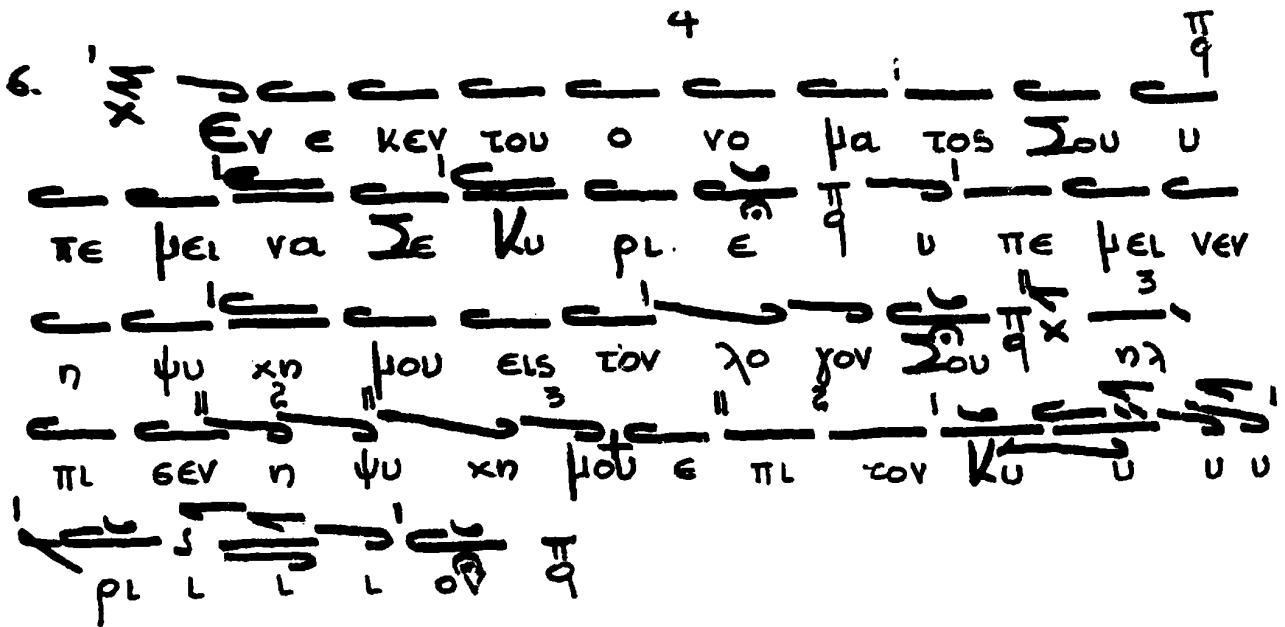 4
6. Εν ε κεν του ο νο μα τος Σου υ
πε μει να Σε Κυ ρι ε υ πε μει νεν
η ψυ χη μου εις τον λο γον Σου ηλ
πι σεν η ψυ χη μου ε πι τον Κυ υ υ υ
ρι ι ι ι ον